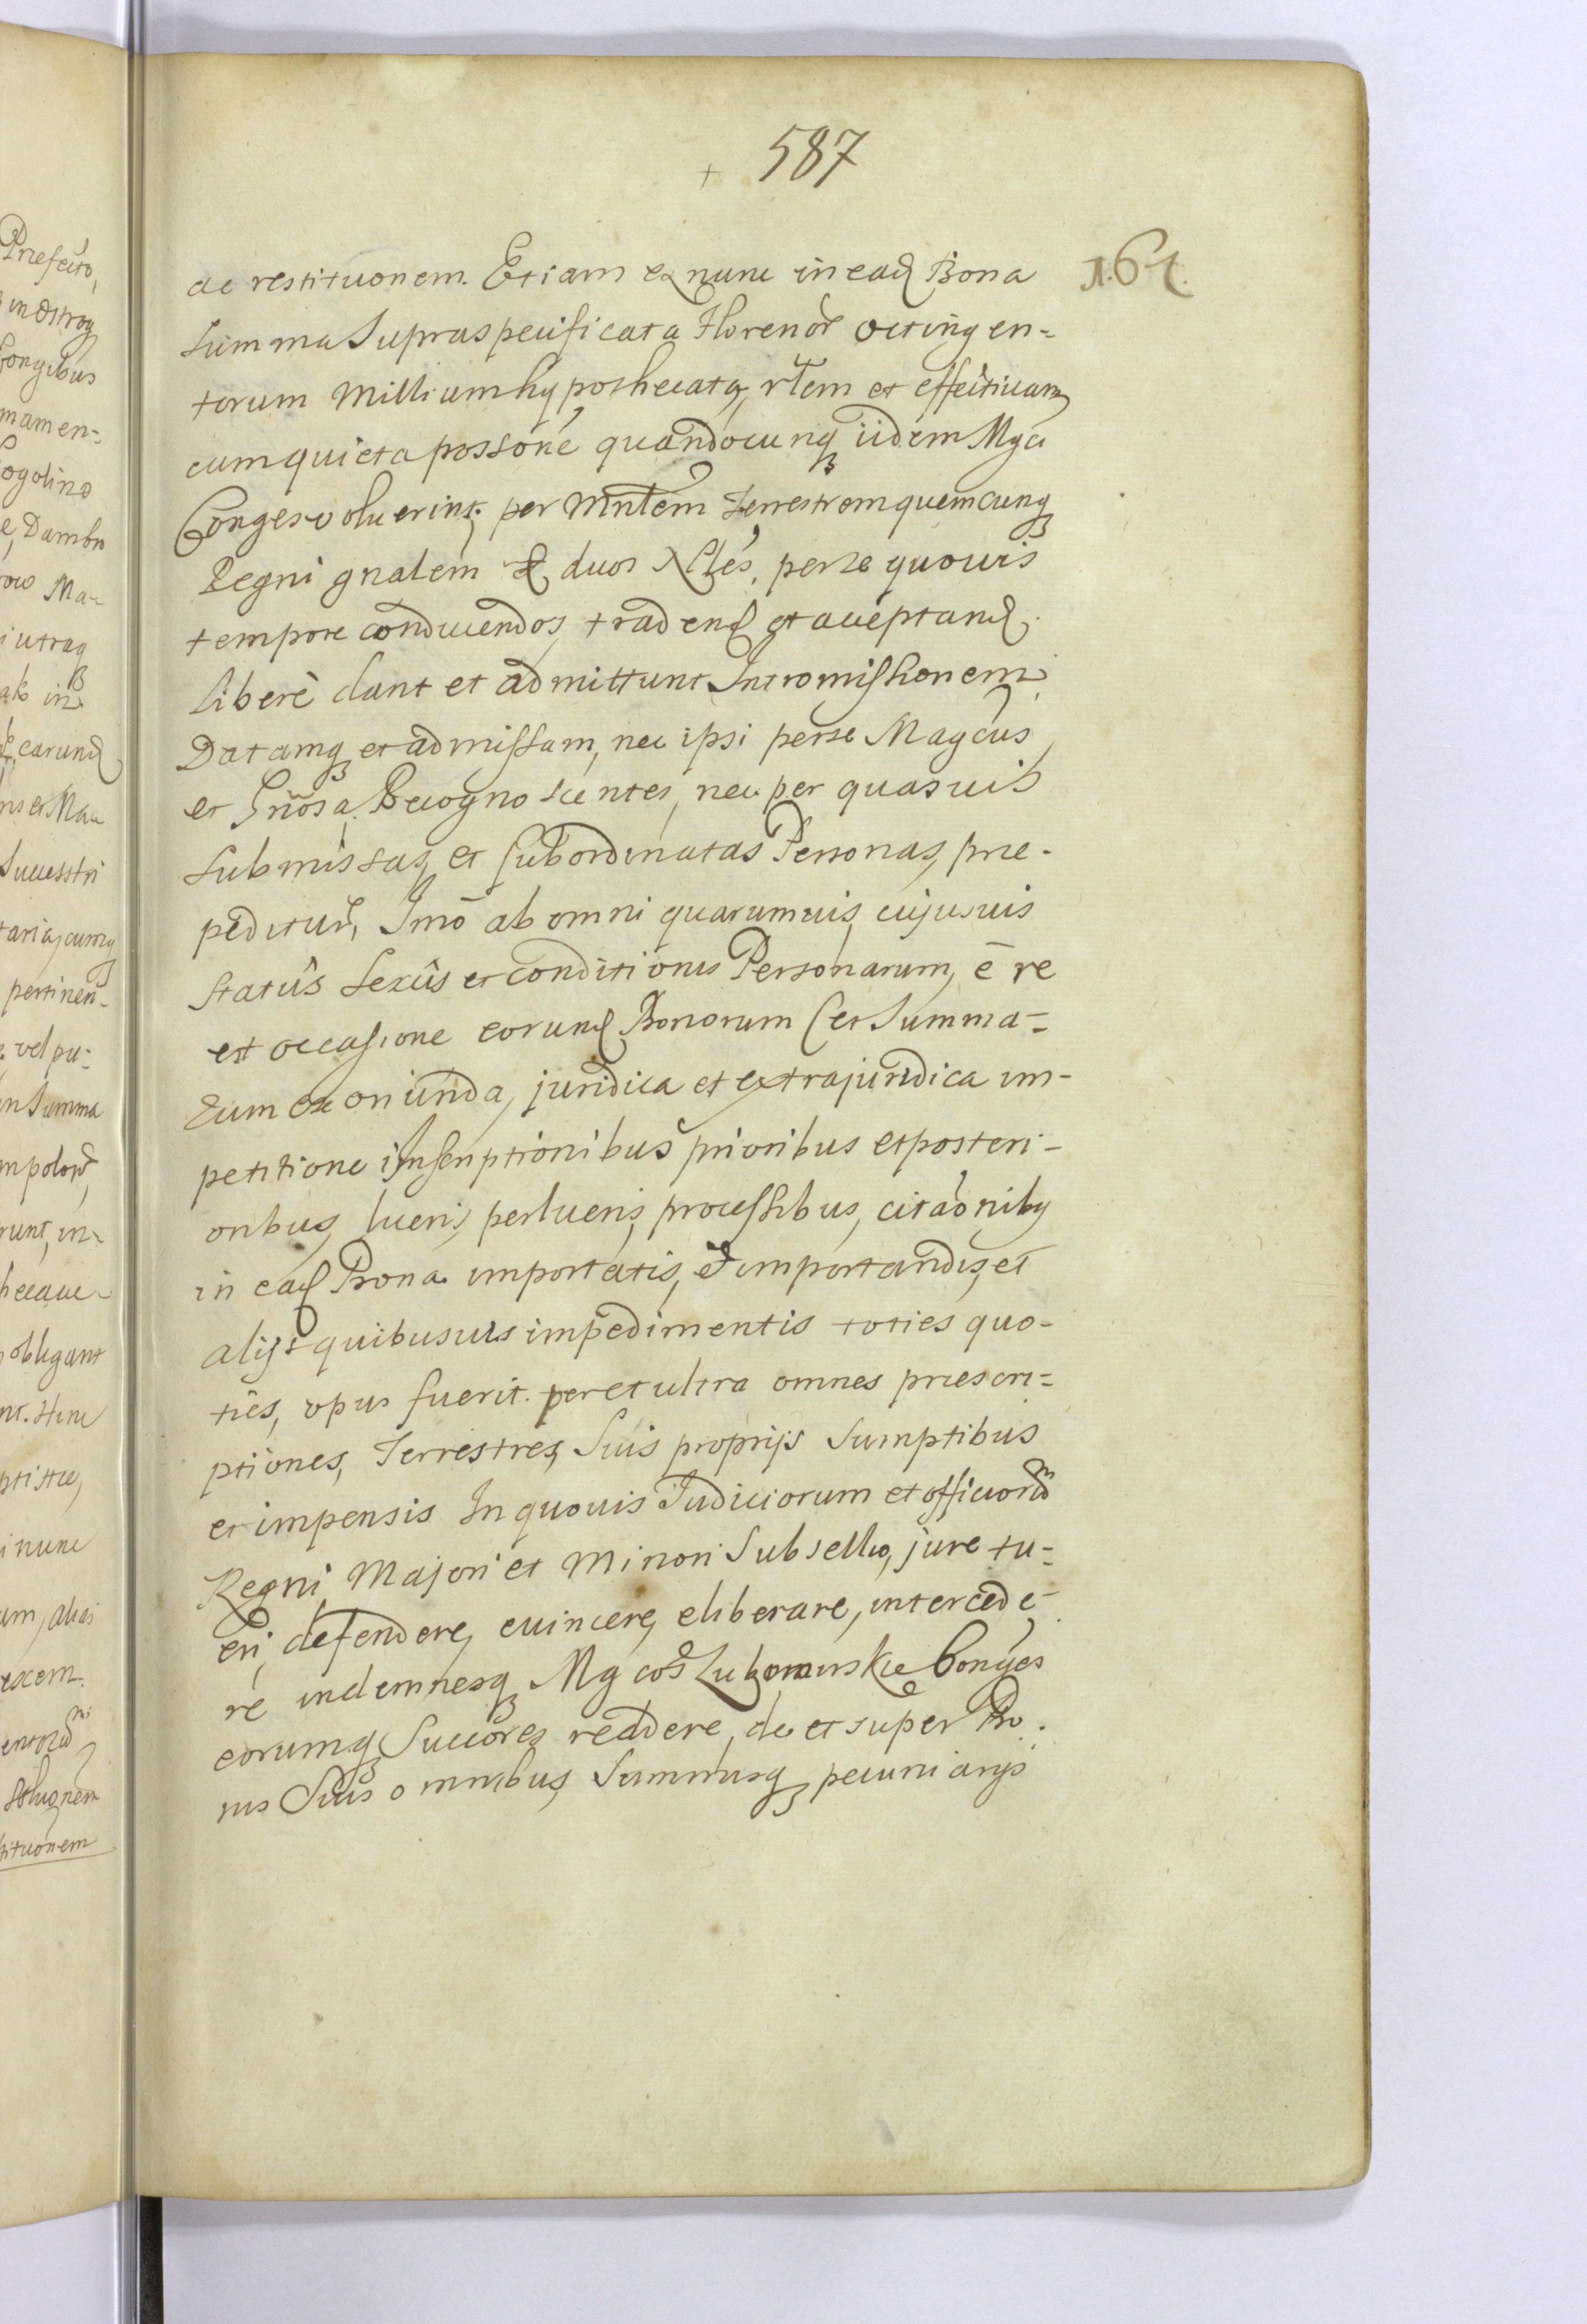 587
ac restituonem. Etiam ex nunc in ead Bona
Summa Supraspecificata Florenor octingen-
torum Millium hypothecata, rlem et effectivam
cum quieta possone quandocunq iidem Mgci
Conges voluerint, per Mnlem Terrestrem quemcunq
Regni gnalem & duos Nbles, per se quovis
tempore conducendos, tradend et acceptand.
libere dant et admittunt Intromissionem.
Datamq et admissam, nec ipsi per se Magcus
et Gnosa Recognoscentes, nec per quasvis
Submissas et Subordinatas Personas, prae-
peditur, Imo ab omni quarumvis, cujusvis
statûs Sexûs et conditionis Personarum, e re
et occasione eorund Bonorum et Summa-
rum ex oriunda, juridica et extrajuridica im-
petitione inscriptionibus prioribus et posteri-
oribus, lucris, perlucris, processibus, citaonibq
in ead Bona importatis, et importandis, et
alijs quibusvis impedimentis toties quo-
ties, opus fuerit. per et ultra omnes praescri-
ptiones, Terrestres, Suis proprijs Sumptibus
et impensis In quovis Judiciorum et officiorum
Regni Majori et Minori Subsellio, jure tu-
eri, defendere, evincere, eliberare, intercede-
re indemnesq Mgcos Lubomirskie Conges
eorumq Succores reddere, de et super Bo-
nis Suis omnibus, Summisq pecuniarijs
Praefecto,
in Ostrog
Congibus
mamen-
ogolino
e, Dambro
Ma-
utraq
in
earund
Successori
pertinen-
vel pu-
in Summa
runt, in-
obligant
nunc
stituonem